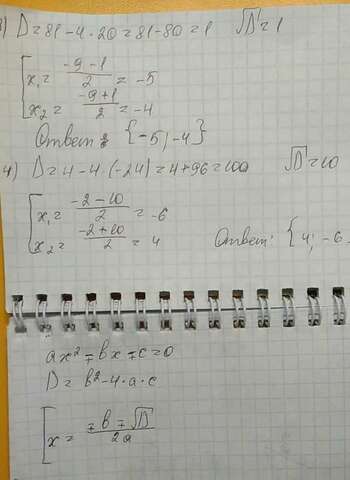 3) D = 81 - 4 · 20 = 81 - 80 = 1 √D = 1
x₁ = (-9 - 1)/2 = -5
x₂ = (-9 + 1)/2 = -4
Ответ: {-5; -4}
4) D = 4 - 4 · (-24) = 4 + 96 = 100 √D = 10
x₁ = (-2 - 10)/2 = -6
x₂ = (-2 + 10)/2 = 4
Ответ: {4; -6
ax² ∓ bx ∓ c = 0
D = b² - 4 · a · c
x = (∓b ∓ √D)/2a